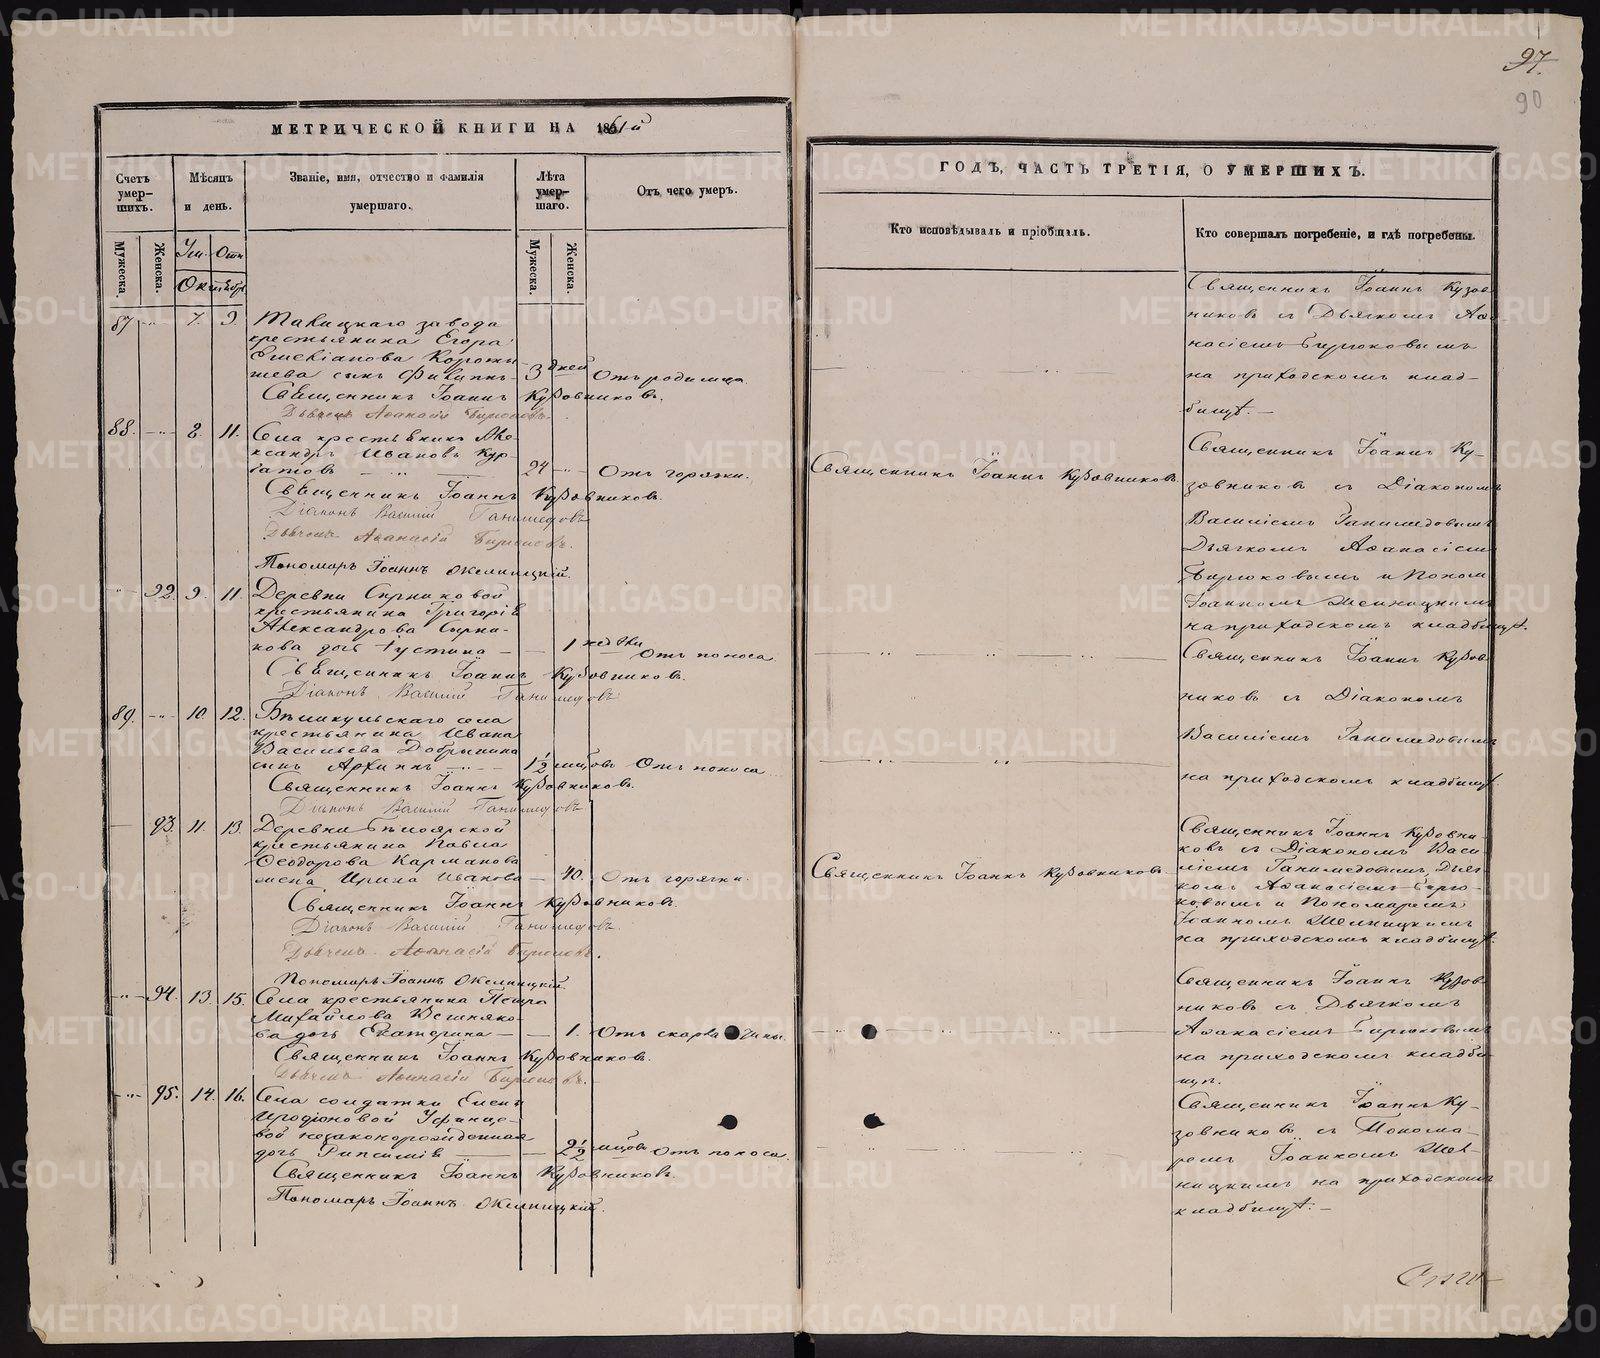 97.
90
МЕТРИЧЕСКОЙ КНИГИ НА 1861й
Счетъ умер-шихъ.
Мѣсяцъ и день.
Званіе, имя, отчество и фамилія умершаго.
Лѣта умер-шаго.
Отъ чего умеръ.
Мужеска.
Женска.
Ум.
Мужеска.
Женска.
87
7.
9.
завода
крестьянина Егора
сынъ Филиппъ
3 дней
Отъ родимца
Священникъ Іоаннъ Кузовниковъ.
Дьячекъ Аѳанасій Бирюковъ.
88.
11.
Села крестьянинъ Але-
ксандръ Ивановъ Кур-
24
Отъ горячки.
Священникъ Іоаннъ Кузовниковъ.
Діаконъ Василій Ганимедовъ
Дьячекъ Аѳанасій Бирюковъ.
Пономарь Іоаннъ
92.
9.
11.
Деревни
крестьянина Григорія
Александрова Сырни-
кова дочь Іустина
1 недѣли
Отъ поноса
Священникъ Іоаннъ Кузовниковъ.
Діаконъ Василій Ганимедовъ
89.
10.
12.
села
крестьянина Ивана
Васильева Добрынина
сынъ Архипъ
1½ мѣсцовъ
Отъ поноса
Священникъ Іоаннъ Кузовниковъ.
Діаконъ Василій Ганимедовъ
93.
11.
13.
Деревни Бѣлоярской
крестьянина Павла
Ѳеодорова Карманова
жена Ирина Иванова
40.
Отъ горячки.
Священникъ Іоаннъ Кузовниковъ.
Діаконъ Василій Ганимедовъ.
Дьячекъ Аѳанасій Бирюковъ.
Пономарь Іоаннъ
94.
13.
15.
Села крестьянина Петра
Михайлова Вешняко-
ва дочь Екатерина
1.
Отъ скарла
Священникъ Іоаннъ Кузовниковъ.
Дьячекъ Аѳанасій Бирюковъ.
95.
14.
16.
Села солдатки Елены
Иродіоновой
незаконорожденная
дочь
2½
Отъ поноса.
Священникъ Іоаннъ Кузовниковъ.
Пономарь Іоаннъ
ГОДЪ, ЧАСТЬ ТРЕТІЯ, О УМЕРШИХЪ.
Кто исповѣдывалъ и пріобщалъ.
Кто совершалъ погребеніе, и гдѣ погребены.
Священникъ Іоаннъ Кузов-
никовъ съ Дьячкомъ Аѳа-
насіемъ Бирюковымъ
на приходскомъ клад-
бищѣ.
Священникъ Іоаннъ Кузовниковъ.
Священникъ Іоаннъ Ку-
зовниковъ съ Діакономъ
Василіемъ Ганимедовымъ
Дьячкомъ Аѳанасіемъ
Бирюковымъ и Поном
Іоанномъ
на приходскомъ кладбищѣ.
Священникъ Іоаннъ Кузов-
никовъ съ Діакономъ
Василіемъ Ганимедовымъ
на приходскомъ кладбищѣ.
Священникъ Іоаннъ Кузовниковъ
Священникъ Іоаннъ Кузовни-
ковъ съ Діакономъ Васи-
ліемъ Ганимедовымъ, Дьяч-
комъ Аѳанасіемъ Бирю-
ковымъ и Пономаремъ
Іоанномъ
на приходскомъ кладбищѣ.
Священникъ Іоаннъ Кузов-
никовъ съ Дьячкомъ
Аѳанасіемъ Бирюковымъ
на приходскомъ кладби
щѣ.
Священникъ Іоаннъ Ку-
зовниковъ съ Понома-
ремъ Іоанномъ
на приходскомъ
кладбищѣ.
METRIKI.GASO-URAL.RU